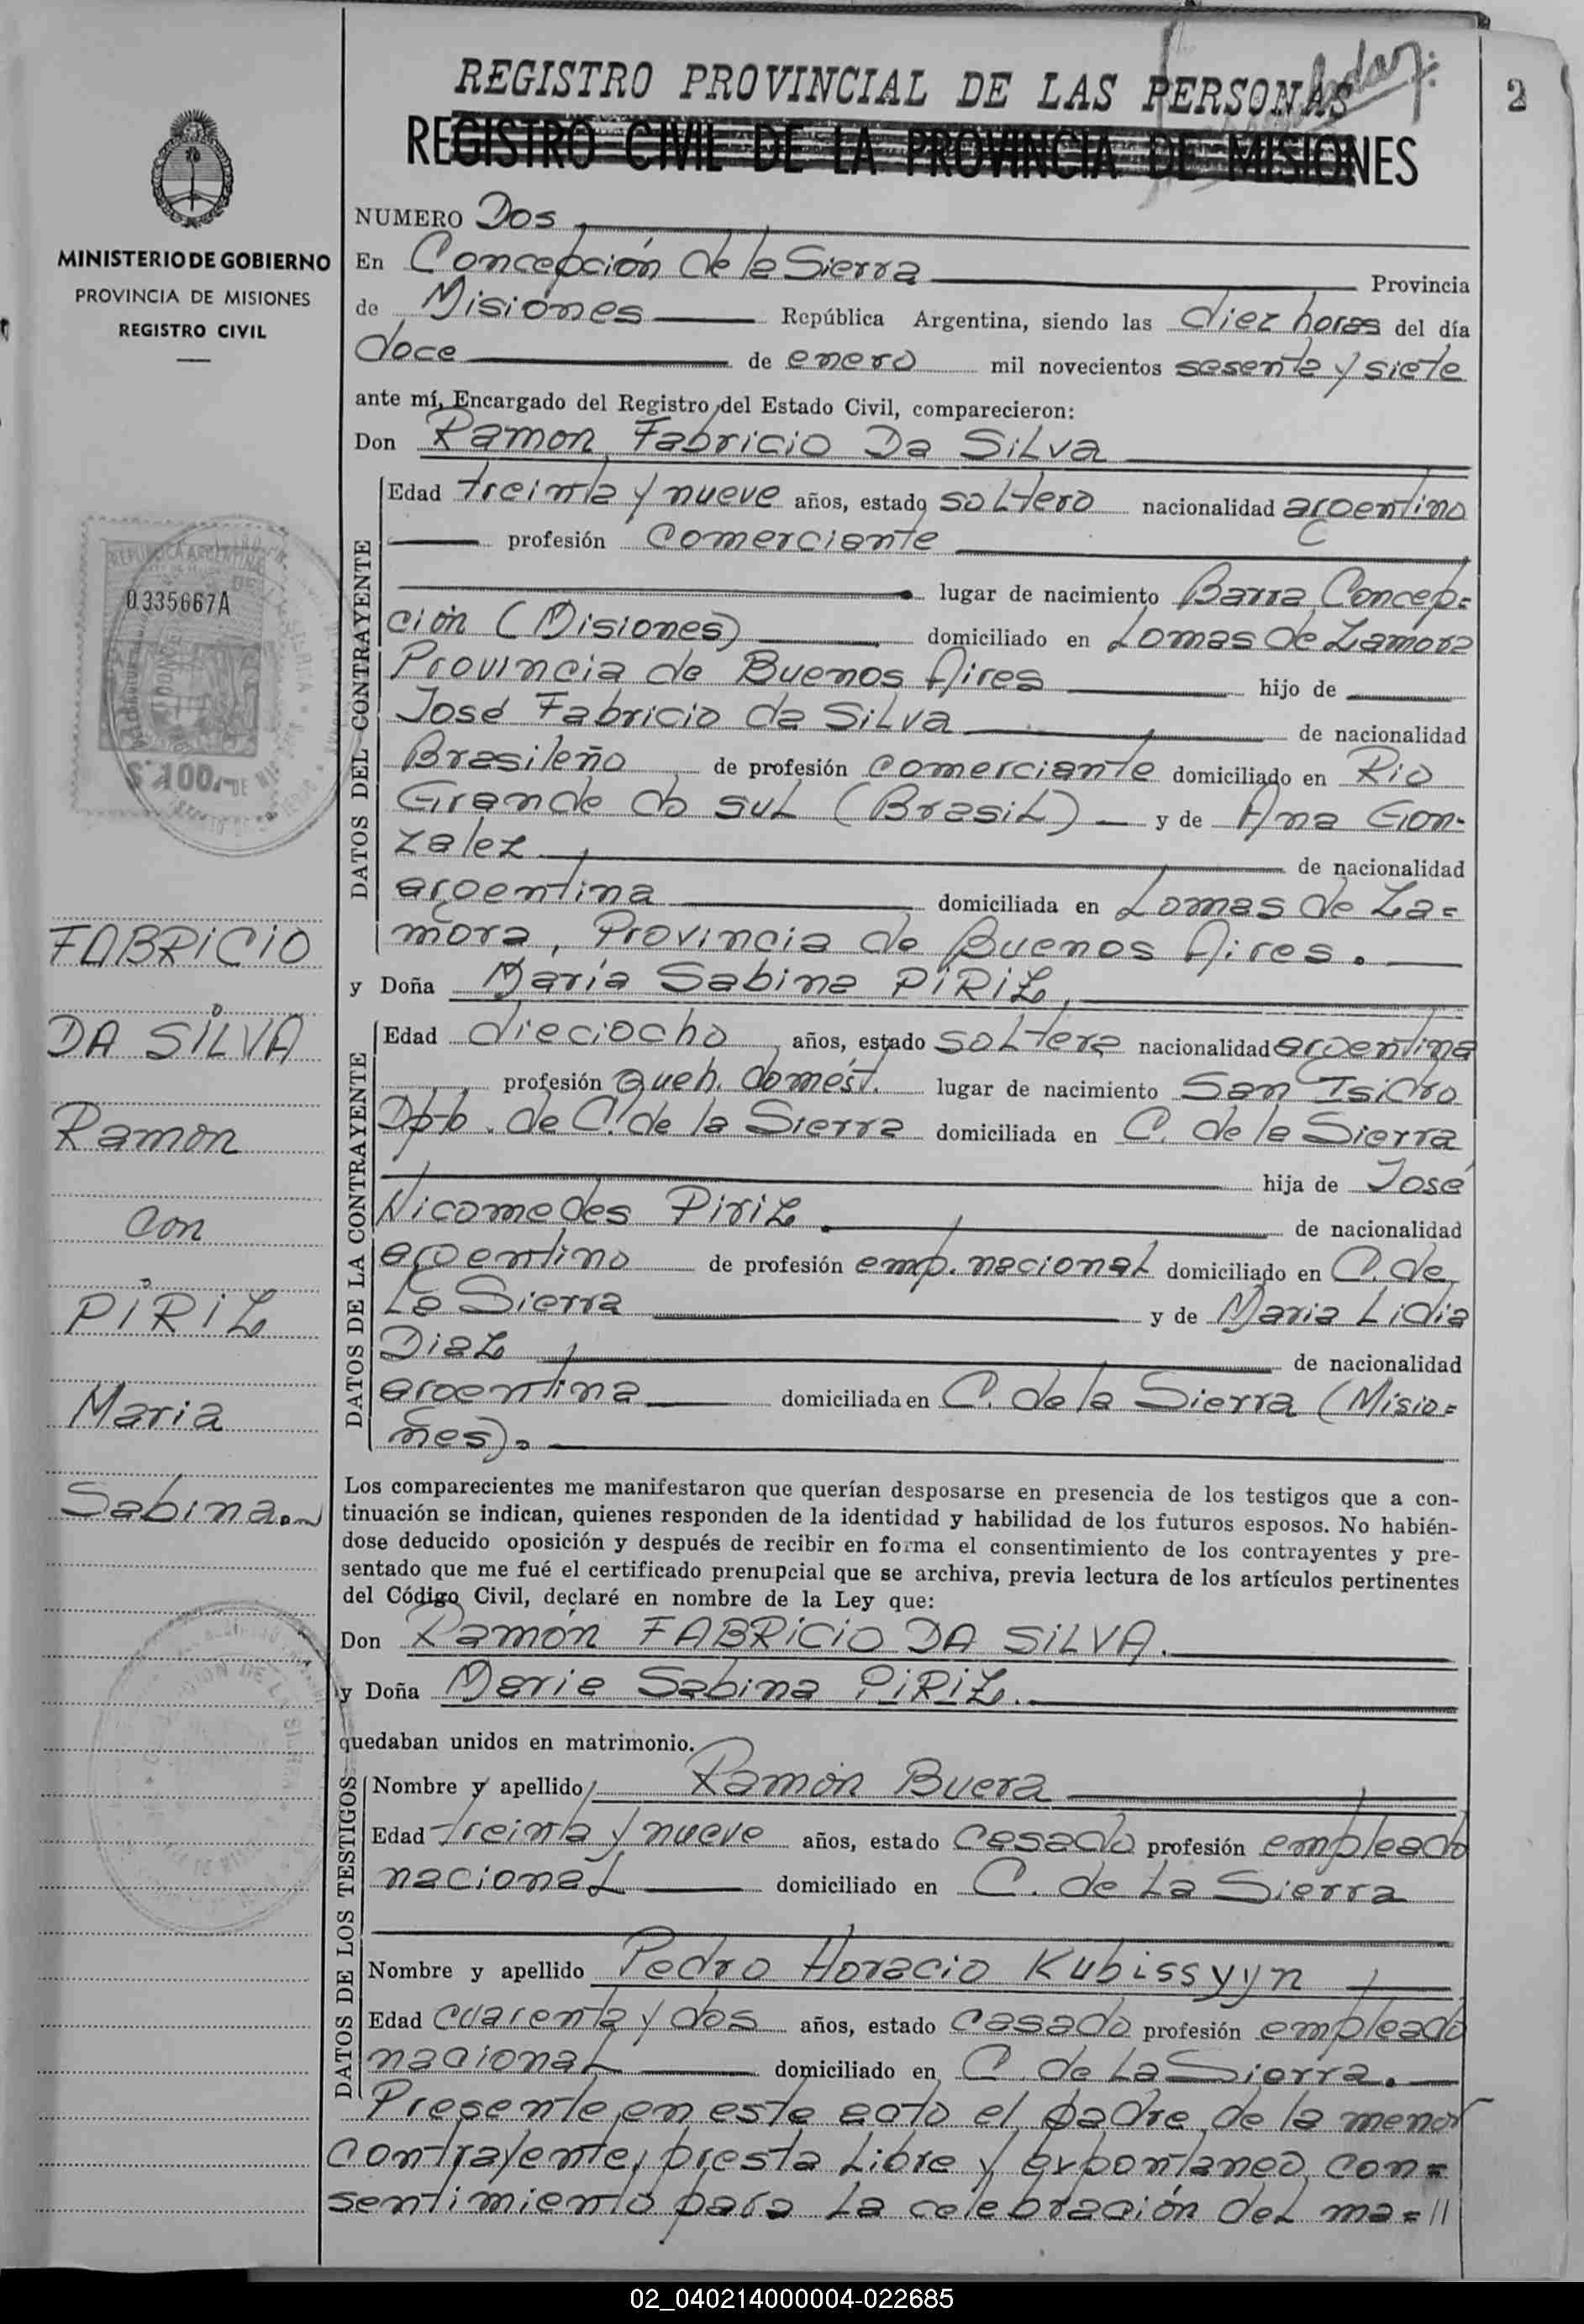 REGISTRO PROVINCIAL DE LAS PERSONAS
REGISTRO CIVIL DE LA PROVINCIA DE MISIONES
2
MINISTERIO DE GOBIERNO
PROVINCIA DE MISIONES
REGISTRO CIVIL
REPUBLICA ARGENTINA
0.335667A
$.100.-
FABRICIO
DA SILVA
Ramon
Con
PIRIZ
Maria
Sabina.
NUMERO Dos
En Concepción de la Sierra Provincia
de Misiones República Argentina, siendo las diez horas del día
doce de enero mil novecientos sesenta y siete
ante mí, Encargado del Registro del Estado Civil, comparecieron:
Don Ramon Fabricio Da Silva
DATOS DEL CONTRAYENTE
Edad treinta y nueve años, estado soltero nacionalidad argentino
profesión Comerciante
lugar de nacimiento Barra Concep=
ción (Misiones) domiciliado en Lomas de Zamora
Provincia de Buenos Aires hijo de
José Fabricio da Silva de nacionalidad
Brasileño de profesión comerciante domiciliado en Rio
Grande do sul (Brasil) y de Ana Gon-
zalez de nacionalidad
argentina domiciliada en Lomas de Za=
mora, Provincia de Buenos Aires.
y Doña María Sabina PIRIZ,
DATOS DE LA CONTRAYENTE
Edad dieciocho años, estado soltera nacionalidad argentina
profesión Queh. domést. lugar de nacimiento San Isidro
Dpto. de C. de la Sierra domiciliada en C. de la Sierra
hija de José
Nicomedes Piriz. de nacionalidad
argentino de profesión emp. nacional domiciliado en C. de
La Sierra y de Maria Lidia
Diaz de nacionalidad
argentina domiciliada en C. de la Sierra (Misio=
nes).
Los comparecientes me manifestaron que querían desposarse en presencia de los testigos que a con-
tinuación se indican, quienes responden de la identidad y habilidad de los futuros esposos. No habién-
dose deducido oposición y después de recibir en forma el consentimiento de los contrayentes y pre-
sentado que me fué el certificado prenupcial que se archiva, previa lectura de los artículos pertinentes
del Código Civil, declaré en nombre de la Ley que:
Don Ramón FABRICIO DA SILVA.
y Doña Maria Sabina PIRIZ.
quedaban unidos en matrimonio.
DATOS DE LOS TESTIGOS
Nombre y apellido Ramón Buera
Edad treinta y nueve años, estado casado profesión empleado
nacional domiciliado en C. de La Sierra
Nombre y apellido Pedro Horacio Kubissyyn
Edad cuarenta y dos años, estado casado profesión empleado
nacional domiciliado en C. de La Sierra.
Presente en este acto el padre de la menor
contrayente, presta libre y expontaneo con=
sentimiento para la celebración del ma=//
02_040214000004-022685